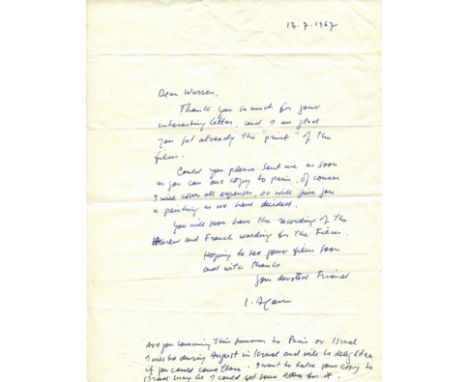 13.7.1967
Dear Warren,
Thank you so much for your
interesting letter, and I am glad
you got already the "print" of the
film.
Could you please sent me as soon
as you can one copy to paris, of course
I will cover all expenses, or will give you
a painting as we have decided.
You will soon have the recording of the
Hebrew and French wording for the Film.
Hoping to see your film soon
and with thanks
your devoted Friend
Are you comming this summer to Paris or Israel
I will be during August in Israel and will be delighted
if you could come there. I want to take some copy to
Israel may be I could get some for it.